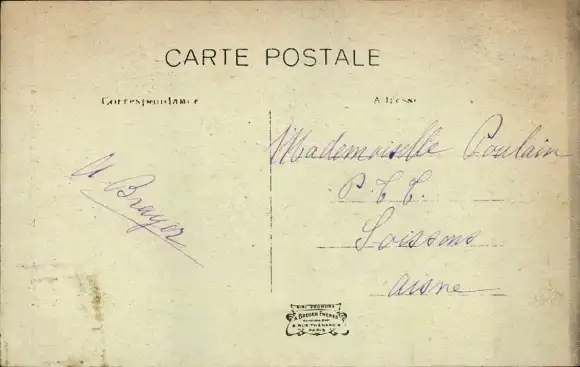 CARTE POSTALE
Correspondance
Adresse
A Brayer
Mademoiselle Poulain
P. T. T.
Soissons
Aisne
PARIS